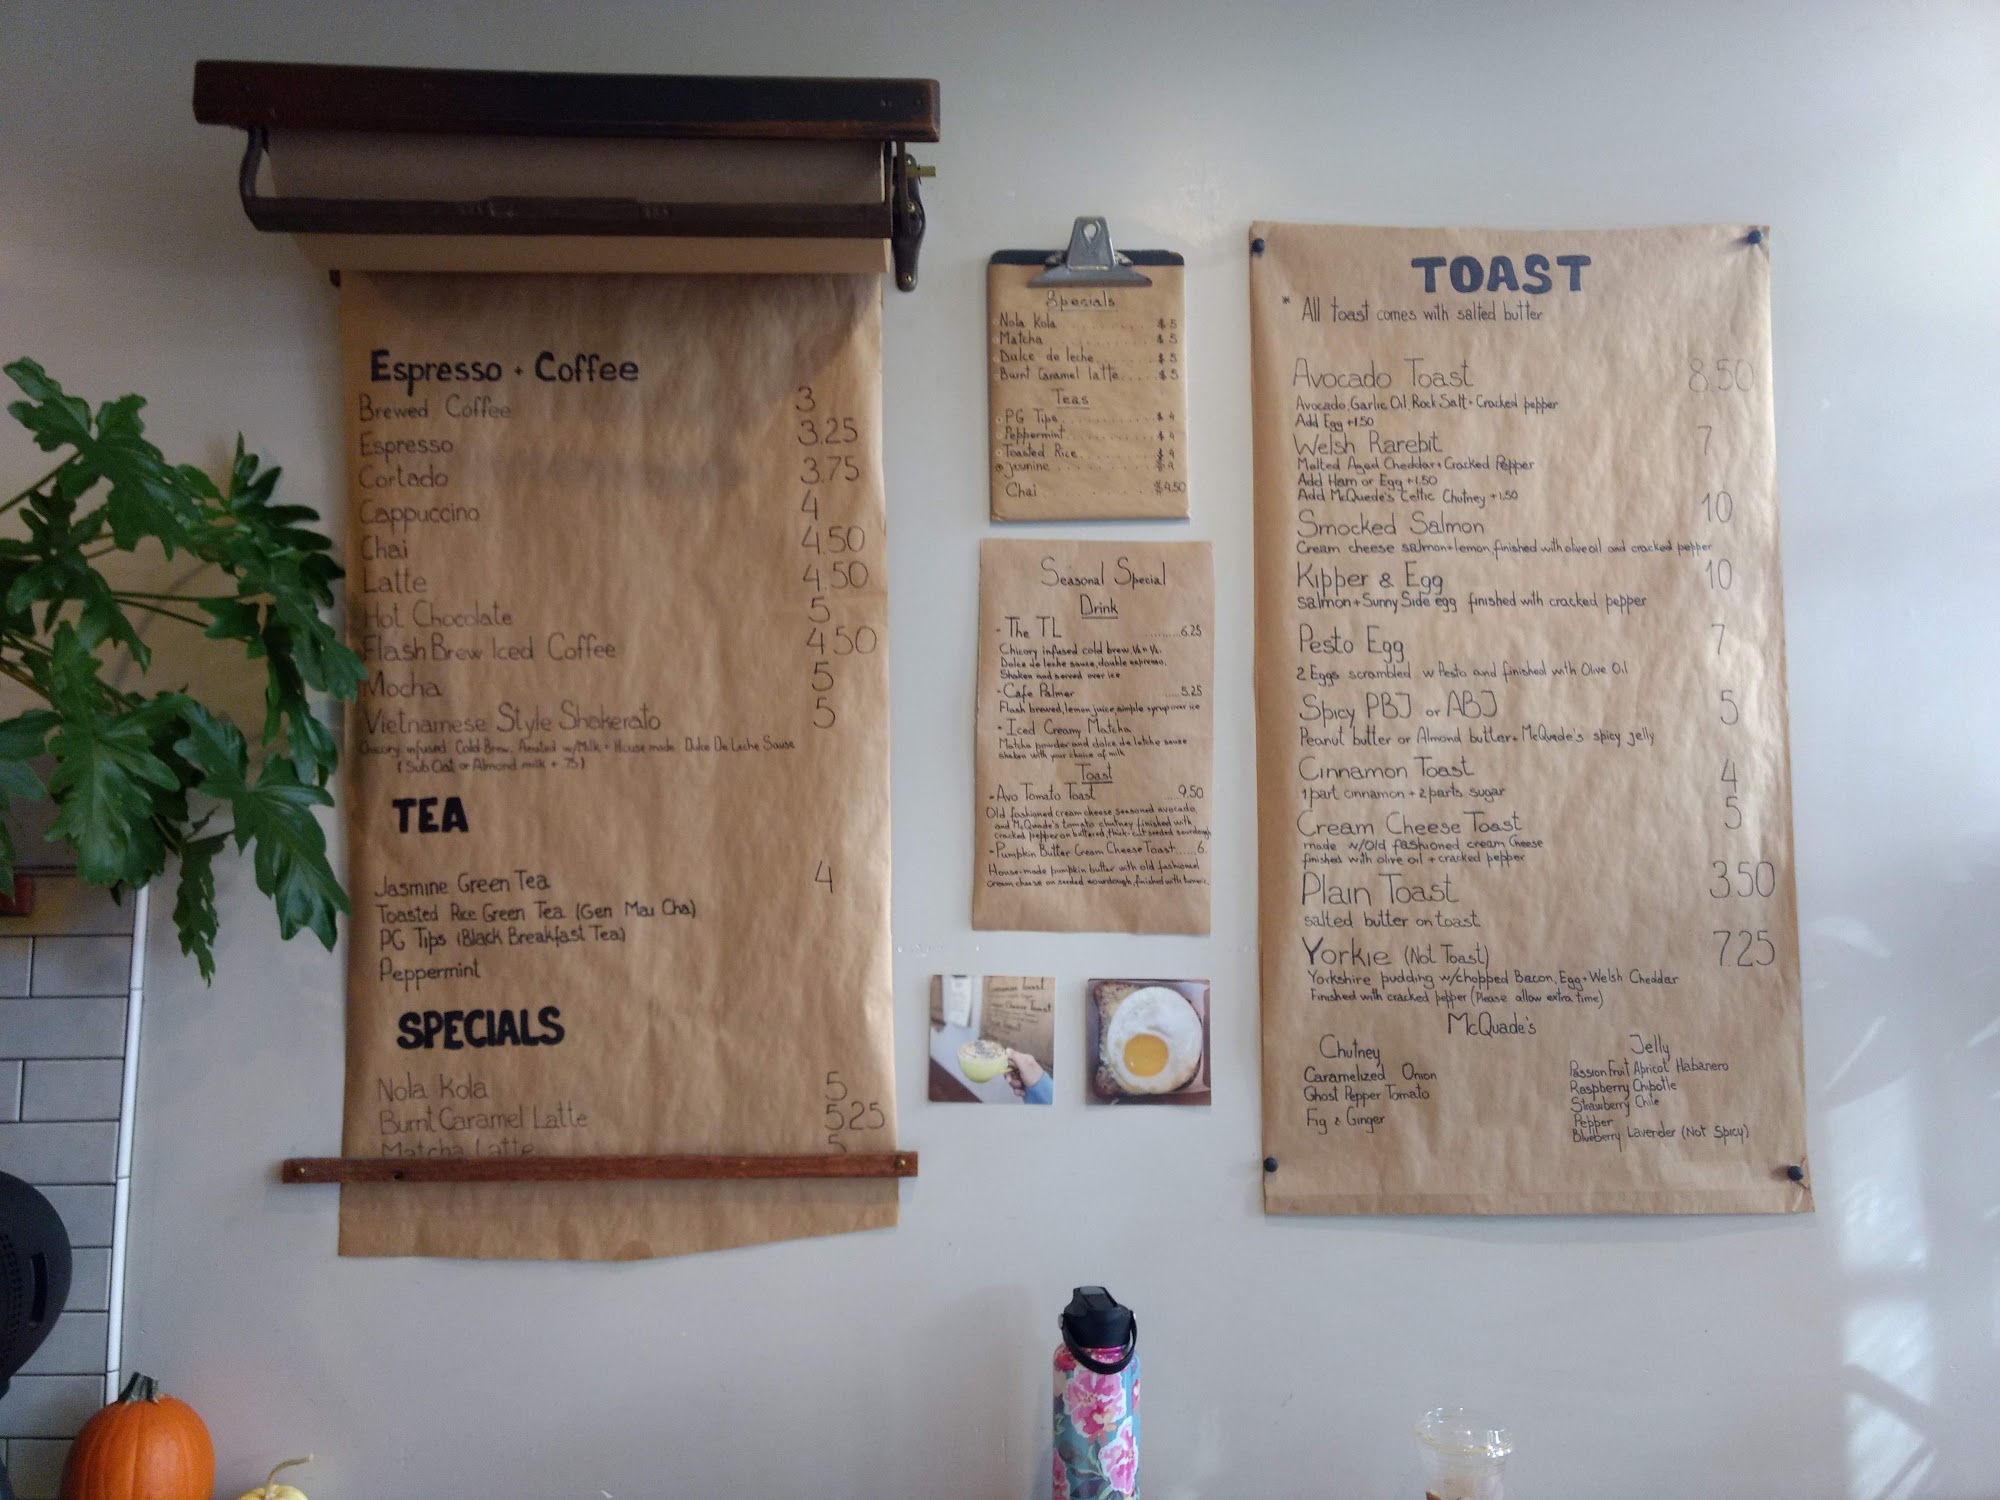 Espresso + Coffee
Brewed Coffee 3
Espresso 3.25
Cortado 3.75
Cappuccino 4
Chai 4.50
Latte 4.50
Hot Chocolate 5
Flash Brew Iced Coffee 4.50
Mocha 5
Vietnamese Style Shakerato 5
Chicory infused Cold Brew, Aerated w/Milk + House made Dulce De Leche Sause
(Sub Oat or Almond milk + .75)
TEA
Jasmine Green Tea 4
Toasted Rice Green Tea (Gen Mai Cha)
PG Tips (Black Breakfast Tea)
Peppermint
SPECIALS
Nola Kola 5
Burnt Caramel Latte 5.25
Matcha Latte 5
Specials
Nola Kola $5
Matcha $5
Dulce de leche $5
Burnt Caramel latte $5
Teas
PG Tips $4
Peppermint $4
Toasted Rice $4
Jasmine $4
Chai $4.50
Seasonal Special
Drink
- The TL 6.25
Chicory infused cold brew,
Dolce de leche sauce, double espresso.
Shaken and served over ice
- Cafe Palmer 5.25
Flash brewed, lemon juice, simple syrup over ice
- Iced Creamy Matcha
Matcha powder and dolce de letche sause
shaken with your choice of milk
Toast
- Avo Tomato Toast 9.50
Old fashioned cream cheese seasoned avocado,
and McQuade's tomato chutney finished with
cracked pepper on buttered, thick-cut seeded sourdough
- Pumpkin Butter Cream Cheese Toast 6.
House-made pumpkin butter with old fashioned
cream cheese on seeded sourdough, finished with
Cinnamon Toast
Cheese Toast
TOAST
* All toast comes with salted butter
Avocado Toast 8.50
Avocado, Garlic Oil, Rock Salt + Cracked pepper
Add Egg +1.50
Welsh Rarebit 7
Melted Aged Cheddar + Cracked Pepper
Add Ham or Egg +1.50
Add McQuede's Celtic Chutney +1.50
Smocked Salmon 10
Cream cheese salmon + lemon, finished with olive oil and cracked pepper
Kipper & Egg 10
salmon + Sunny Side egg finished with cracked pepper
Pesto Egg 7
2 Eggs scrambled w Pesto and finished with Olive Oil
Spicy PBJ or ABJ 5
Peanut butter or Almond butter + McQuade's spicy jelly
Cinnamon Toast 4
1 part cinnamon + 2 parts sugar
Cream Cheese Toast 5
made w/Old fashioned cream Cheese
finished with olive oil + cracked pepper
Plain Toast 3.50
salted butter on toast
Yorkie (Not Toast) 7.25
Yorkshire pudding w/chopped Bacon, Egg + Welsh Cheddar
Finished with cracked pepper (Please allow extra time)
McQuade's
Chutney
Caramelized Onion
Ghost Pepper Tomato
Fig & Ginger
Jelly
Passion Fruit Apricot Habanero
Raspberry Chipotle
Strawberry Chile
Pepper
Blueberry Lavender (Not Spicy)